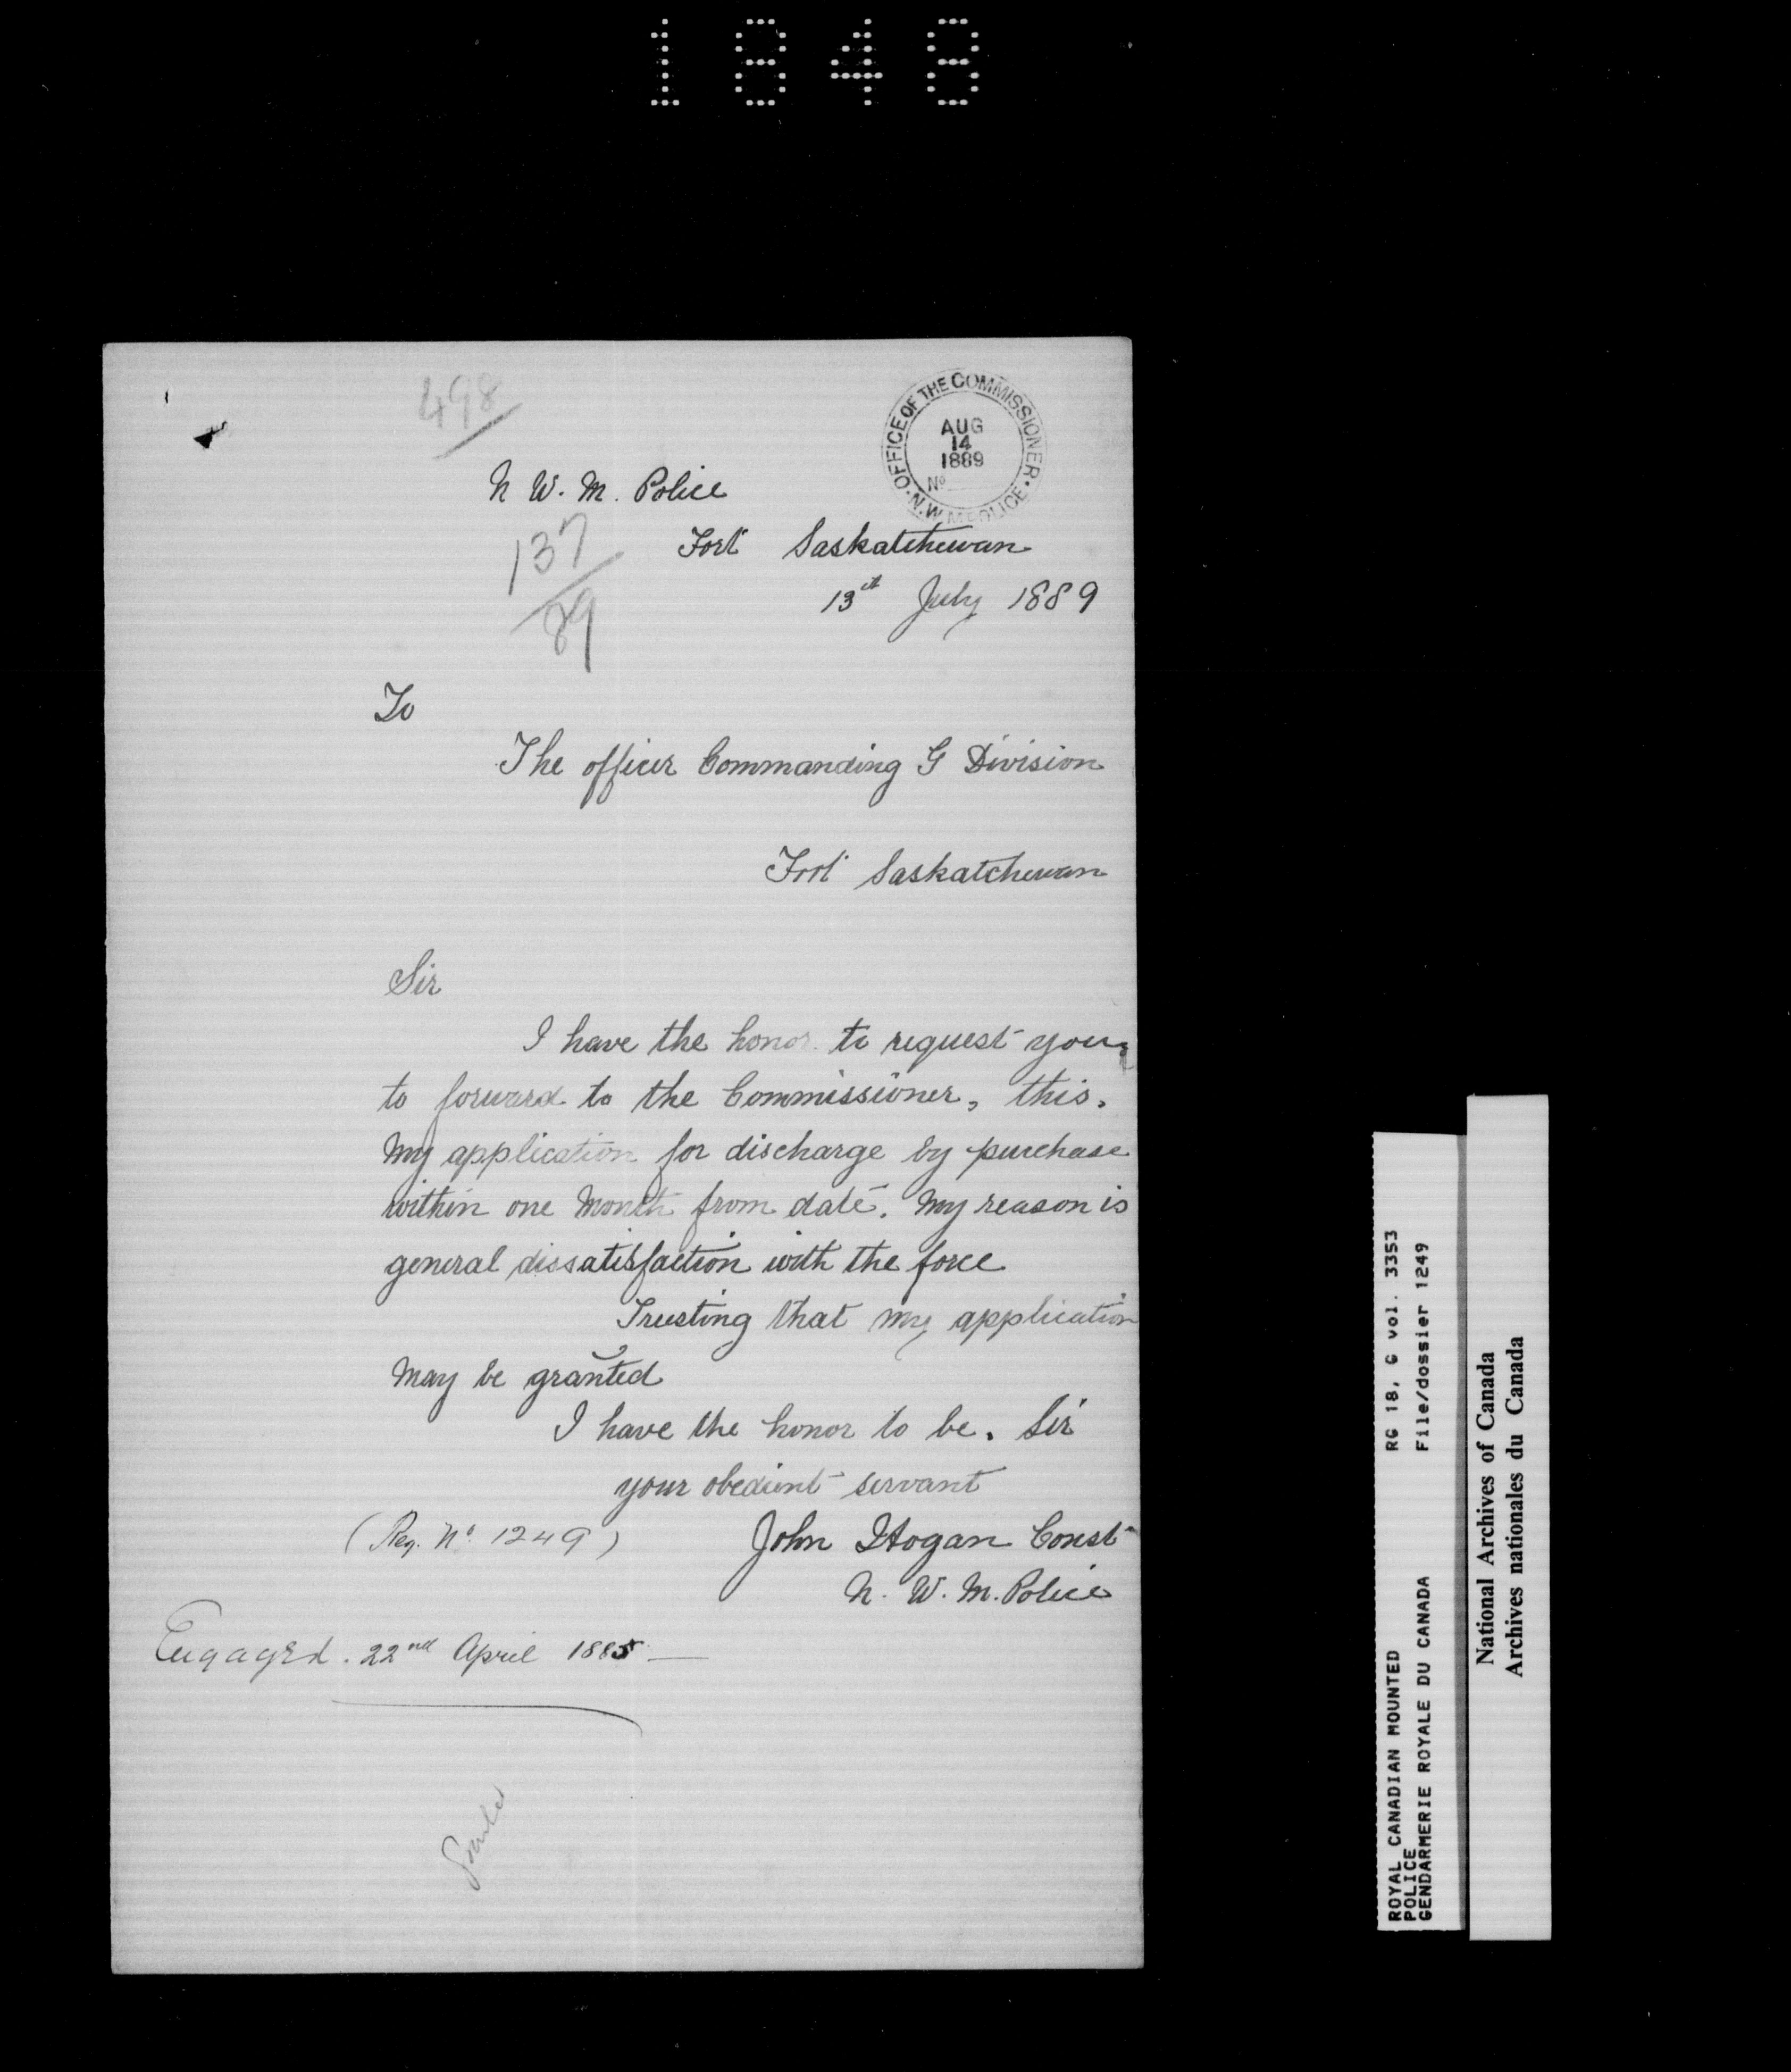 1848
498
OFFICE OF THE COMMISSIONER
AUG
14
1889
No
N.W.M. POLICE
N W. M. Police
137
89
Fort Saskatchewan
13th July 1889
To
The officer Commanding G Division
Fort Saskatchewan
Sir
I have the honor to request you
to forward to the Commissioner, this,
my application for discharge by purchase
within one month from date. My reason is
general dissatisfaction with the force
Trusting that my application
may be granted
I have the honor to be. Sir
your obedient servant
(Reg. No. 1249)
John Hogan Const
N. W. M. Police
Engaged. 22nd April 1885 —
ROYAL CANADIAN MOUNTED
POLICE
GENDARMERIE ROYALE DU CANADA
RG 18, G vol. 3353
File/dossier 1249
National Archives of Canada
Archives nationales du Canada